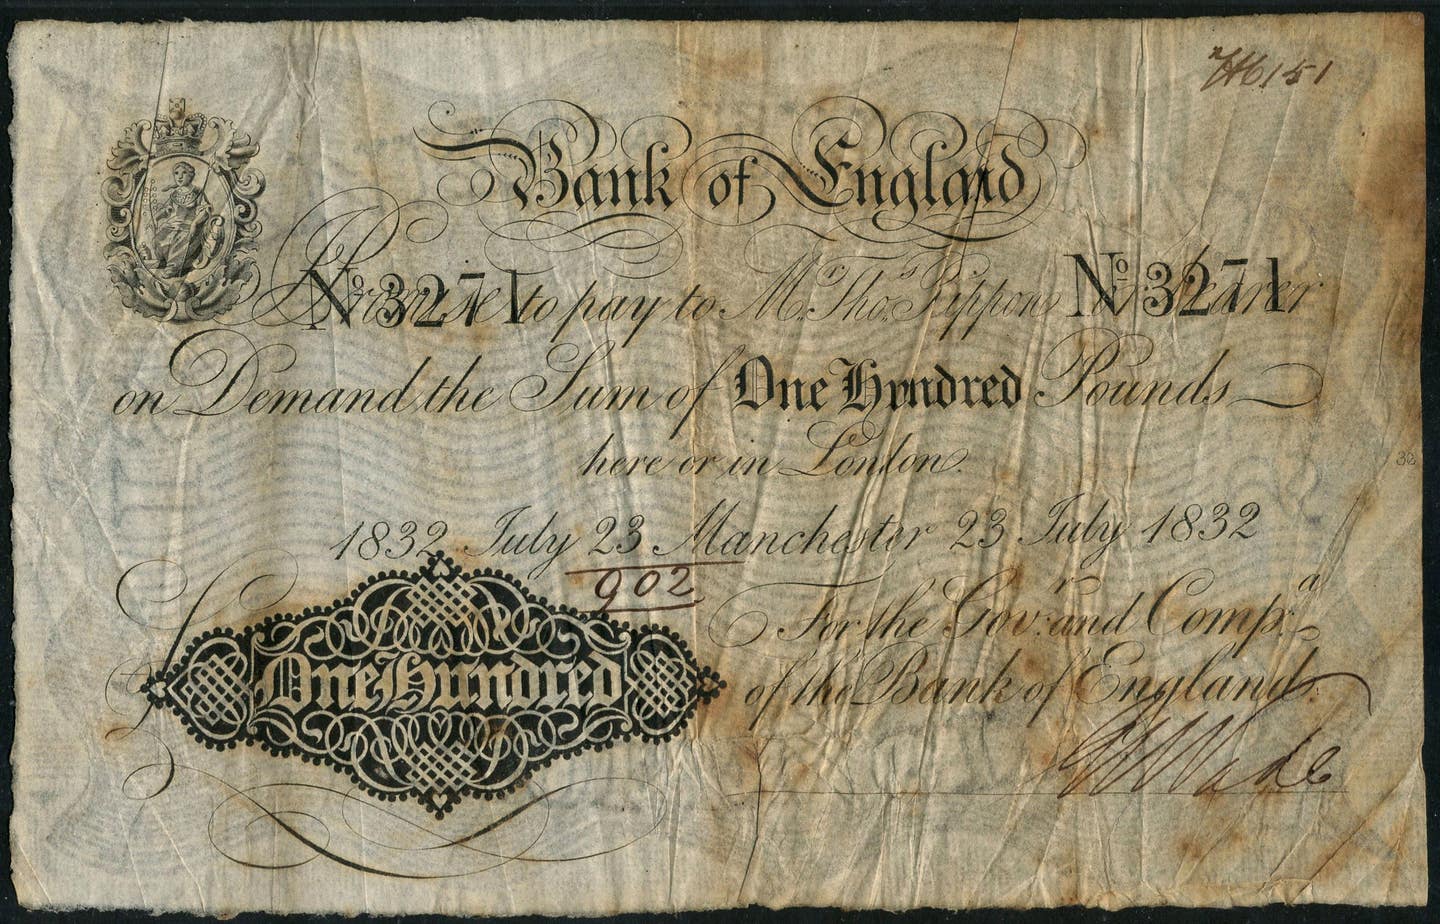 6151
Bank of England
No 3271 No 3271
I Promise to pay to Mr. Thos. Rippon or bearer
on Demand the Sum of One Hundred Pounds
here or in London.
32
1832 July 23 Manchester 23 July 1832
902
For the Govr. and Compa.
£ One Hundred
of the Bank of England.